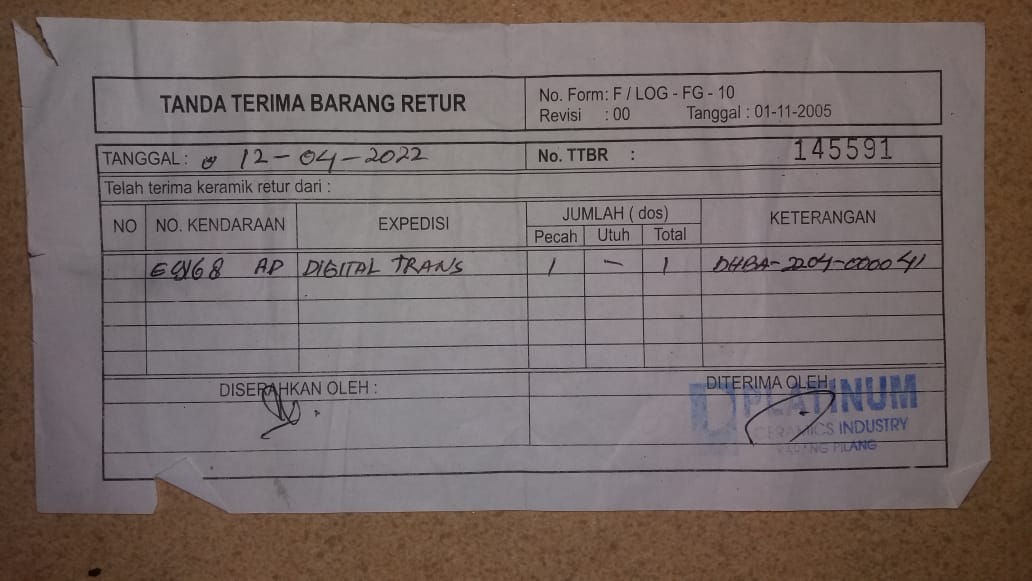 TANDA TERIMA BARANG RETUR
No. Form: F / LOG - FG - 10
Revisi : 00 Tanggal : 01-11-2005
TANGGAL : 12-04-2022 No. TTBR : 145591
Telah terima keramik retur dari :
NO NO. KENDARAAN EXPEDISI JUMLAH ( dos) KETERANGAN
Pecah Utuh Total
AP DIGITAL TRANS 1 - 1 DHBA-2204-000041
DISERAHKAN OLEH : DITERIMA OLEH
PLATINUM
CERAMICS INDUSTRY
PILANG